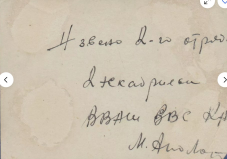 4 звено 2-го отря
2 эскадрильи
ВВАШ ВВС К
М.